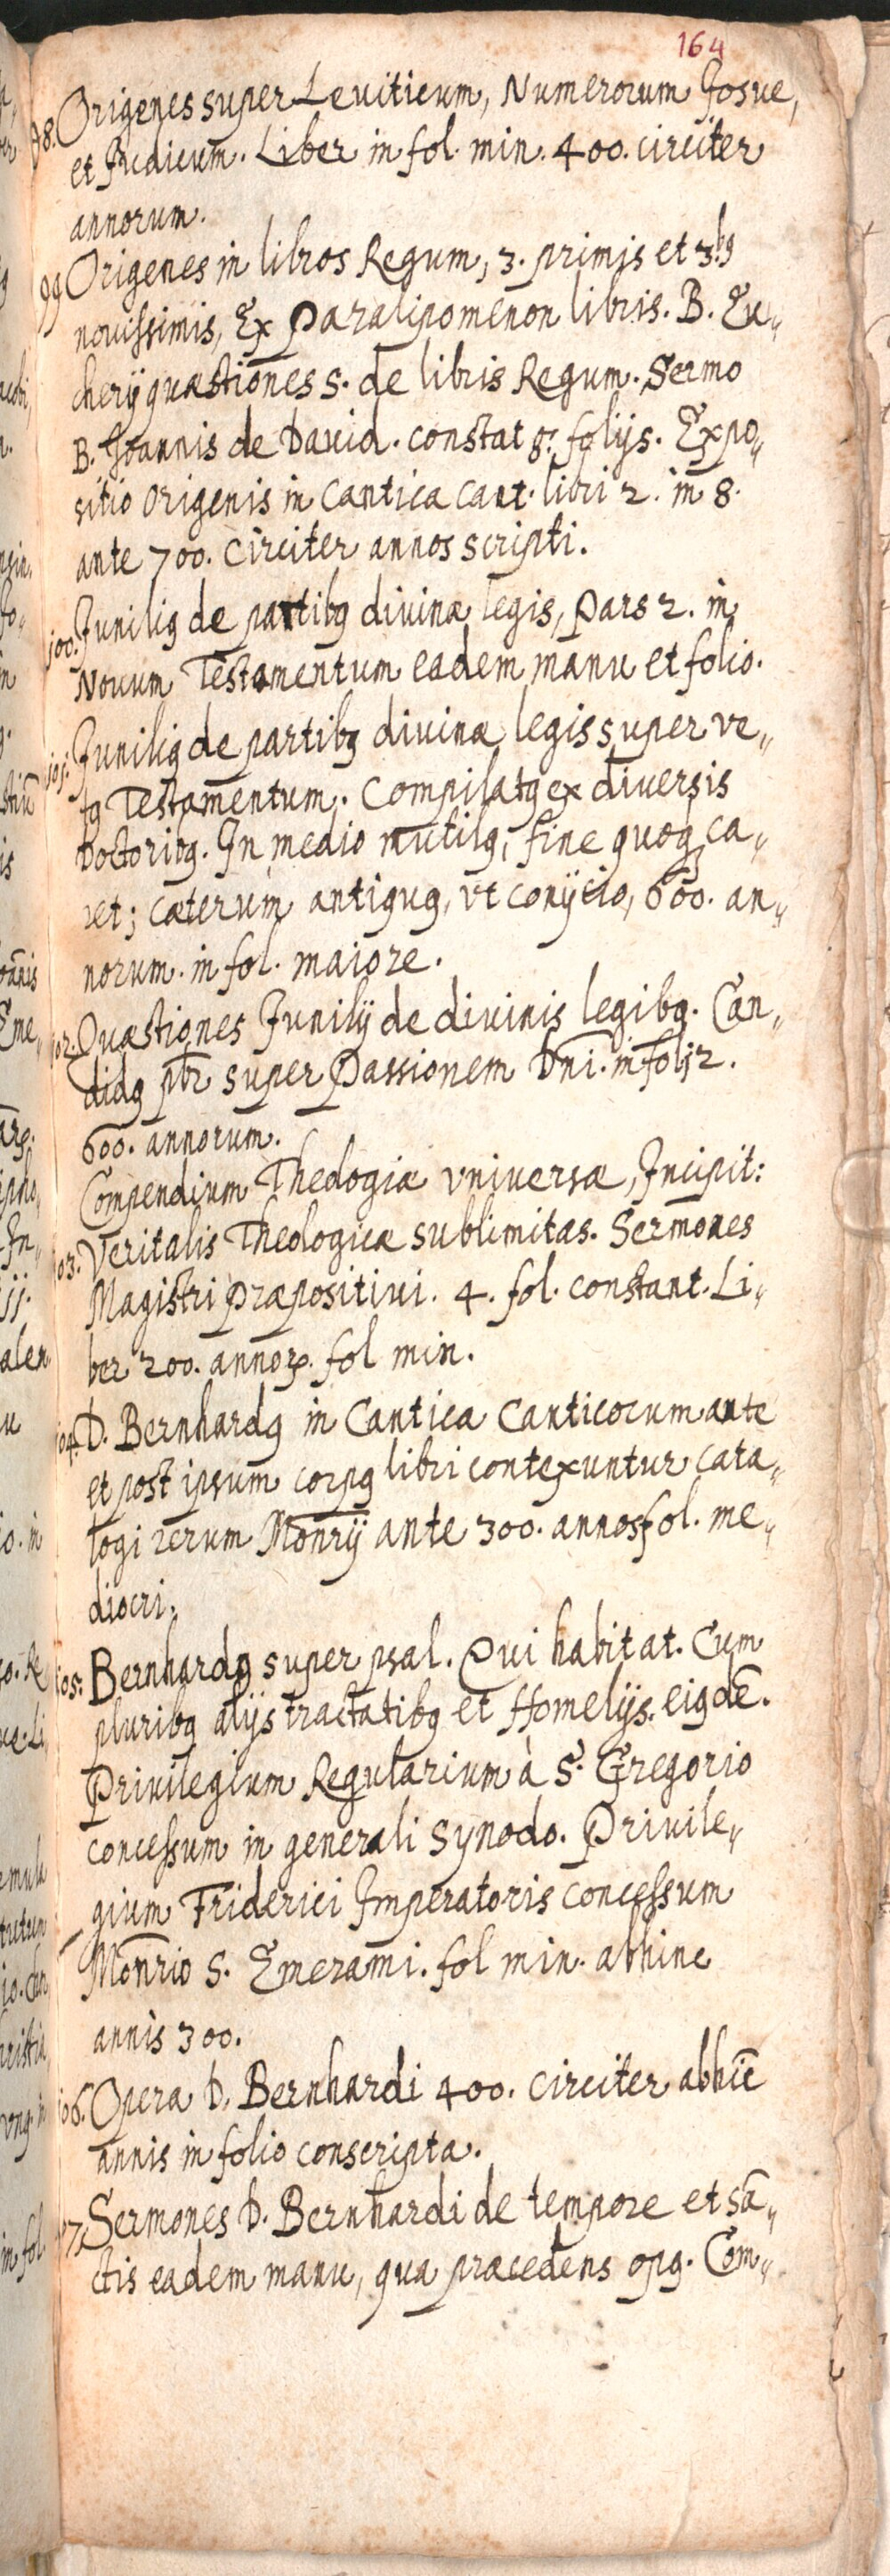 164
98. Origenes super Leuiticum, Numerorum Josue,
et Judicum. Liber in fol. min. 400. circiter
annorum.
99 Origenes in libros Regum, 3. primis et 3.bꝰ
nouissimis, Ex Paralipomenon libris. B. Eu„
cherij quæstiones s. de libris Regum. Sermo
B. Joannis de Dauid. constat 8. folijs. Expo„
sitio Origenis in Cantica Cant. libri 2. in 8.
ante 700. circiter annos scripti.
100. Juniliꝰ de partibꝰ diuinæ legis, Pars 2. in
Nouum Testamentum eadem manu et folio.
101. Juniliꝰ de partibꝰ diuinæ legis super ve„
tꝰ Testamentum. Compilatꝰ ex diuersis
Doctoribꝰ. In medio mutilꝰ, fine quoqꝫ ca„
ret; cæterum antiquꝰ, vt conijcio, 600. an„
norum. in fol. maiore.
102. Quæstiones Junilij de diuinis legibꝰ. Can„
didꝰ pbr̄ super Passionem Dnī. in fol. 2.
600. annorum.
Compendium Theologiæ vniuersæ, Incipit:
103. Veritatis Theologicæ sublimitas. Sermones
Magistri Præpositiui. 4. fol. constant. Li„
ber 200. annoꝝ. fol min.
104. D. Bernhardꝰ in Cantica Canticorum ante
et post ipsum corpꝰ libri contexuntur cata„
logi rerum Monrij̄ ante 300. annos fol. me„
diocri.
105. Bernhardꝰ super psal. Qui habitat. Cum
pluribꝰ alijs tractatibꝰ et Homelijs. eiꝰdē.
Priuilegium Regularium à S. Gregorio
concessum in generali Synodo. Priuile„
gium Friderici Imperatoris concessum
Monr̄io S. Emerami. fol min. abhinc
annis 300.
106. Opera D. Bernhardi 400. circiter abhīc
annis in folio conscripta.
107. Sermones D. Bernhardi de tempore et Sā„
ctis eadem manu, qua præcedens opꝰ. Com„